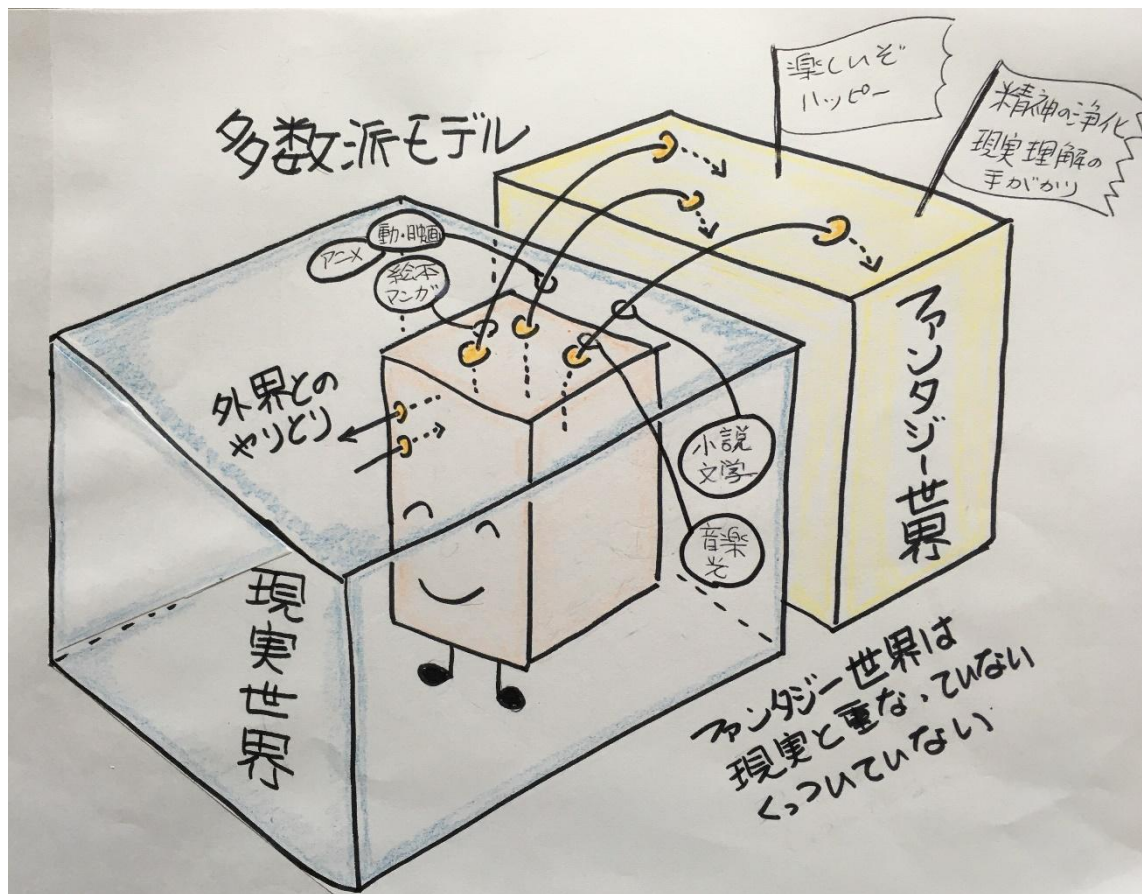 楽しいぞ
ハッピー
精神の浄化
現実理解の
手がかり
多数派モデル
動・映画
アニメ
絵本
マンガ
外界との
やりとり
小説
文学
音楽
光
ファンタジー世界
現実世界
ファンタジー世界は
現実と重なっていない
くっついていない